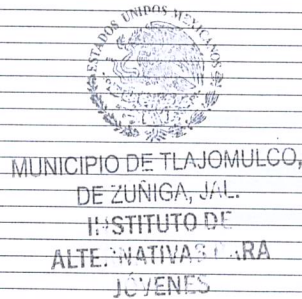 ESTADOS UNIDOS MEXICANOS
MUNICIPIO DE TLAJOMULCO,
DE ZUÑIGA, JAL.
INSTITUTO DE
ALTERNATIVAS PARA
JÓVENES